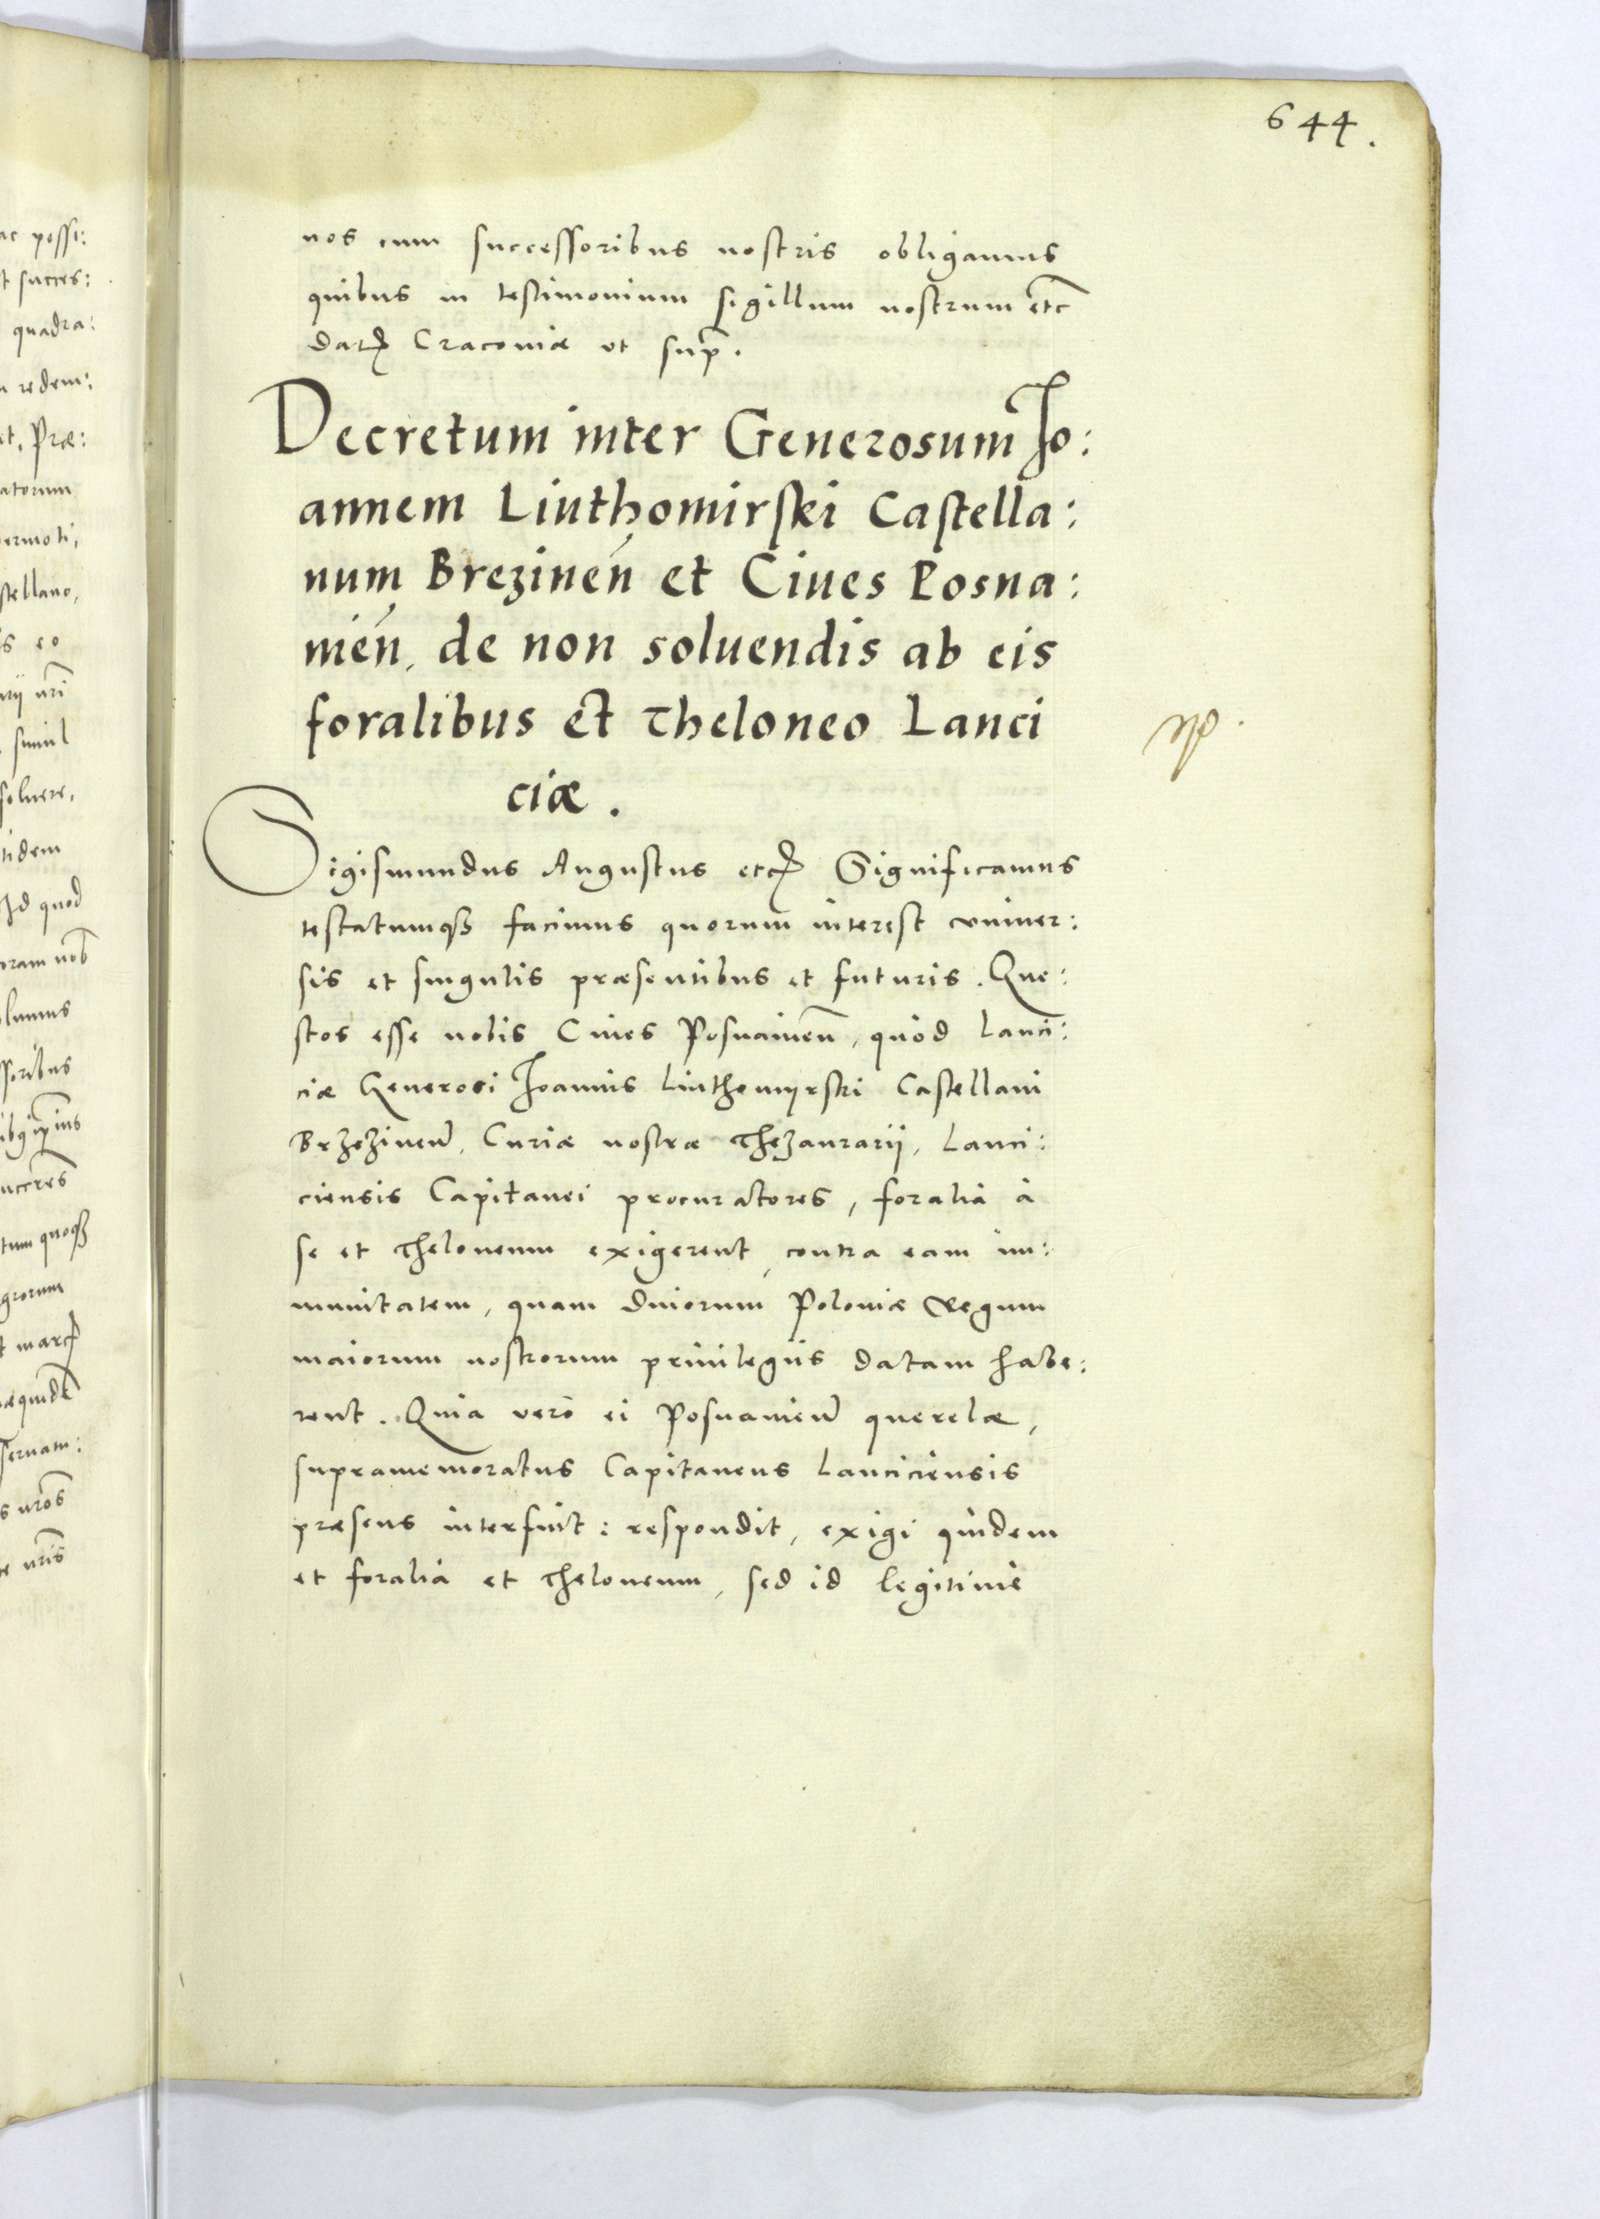 644.
nos cum successoribus nostris obligamus
quibus in testimonium sigillum nostrum etc
Datꝭ Cracoviæ ut sup.
Decretum inter Generosum Jo:
annem Liuthomirski Castella:
num Brezineń et Ciues Posna:
nień, de non soluendis ab eis
foralibus et Theloneo Lanci
ciæ.
Sigismundus Augustus etcꝭ Significamus
testatumqꝫ facimus quorum interest vniuer:
sis et singulis præsentibus et futuris. Que:
stos esse nobis Ciues Posnanień, quòd Lanci:
ciæ Generosi Joannis Liuthomyrski Castellani
Brzezineń, Curiæ nostræ Thezaurarij, Lanci:
ciensis Capitanei procuratores, foralia à
se et Theloneum exigerent, contra eam im:
munitatem, quam diuorum Poloniæ Regum
maiorum nostrorum priuilegiis datam habe:
rent. Quia verò ei Posnanień querelæ,
supramemoratus Capitaneus Lanciciensis
præsens interfuit: respondit, exigi quidem
et foralia et Theloneum, sed id legitimè
ac possi:
et succes:
quadra:
redem:
Præ:
stellano,
eo
simul
soluere,
Id quod
seruam: